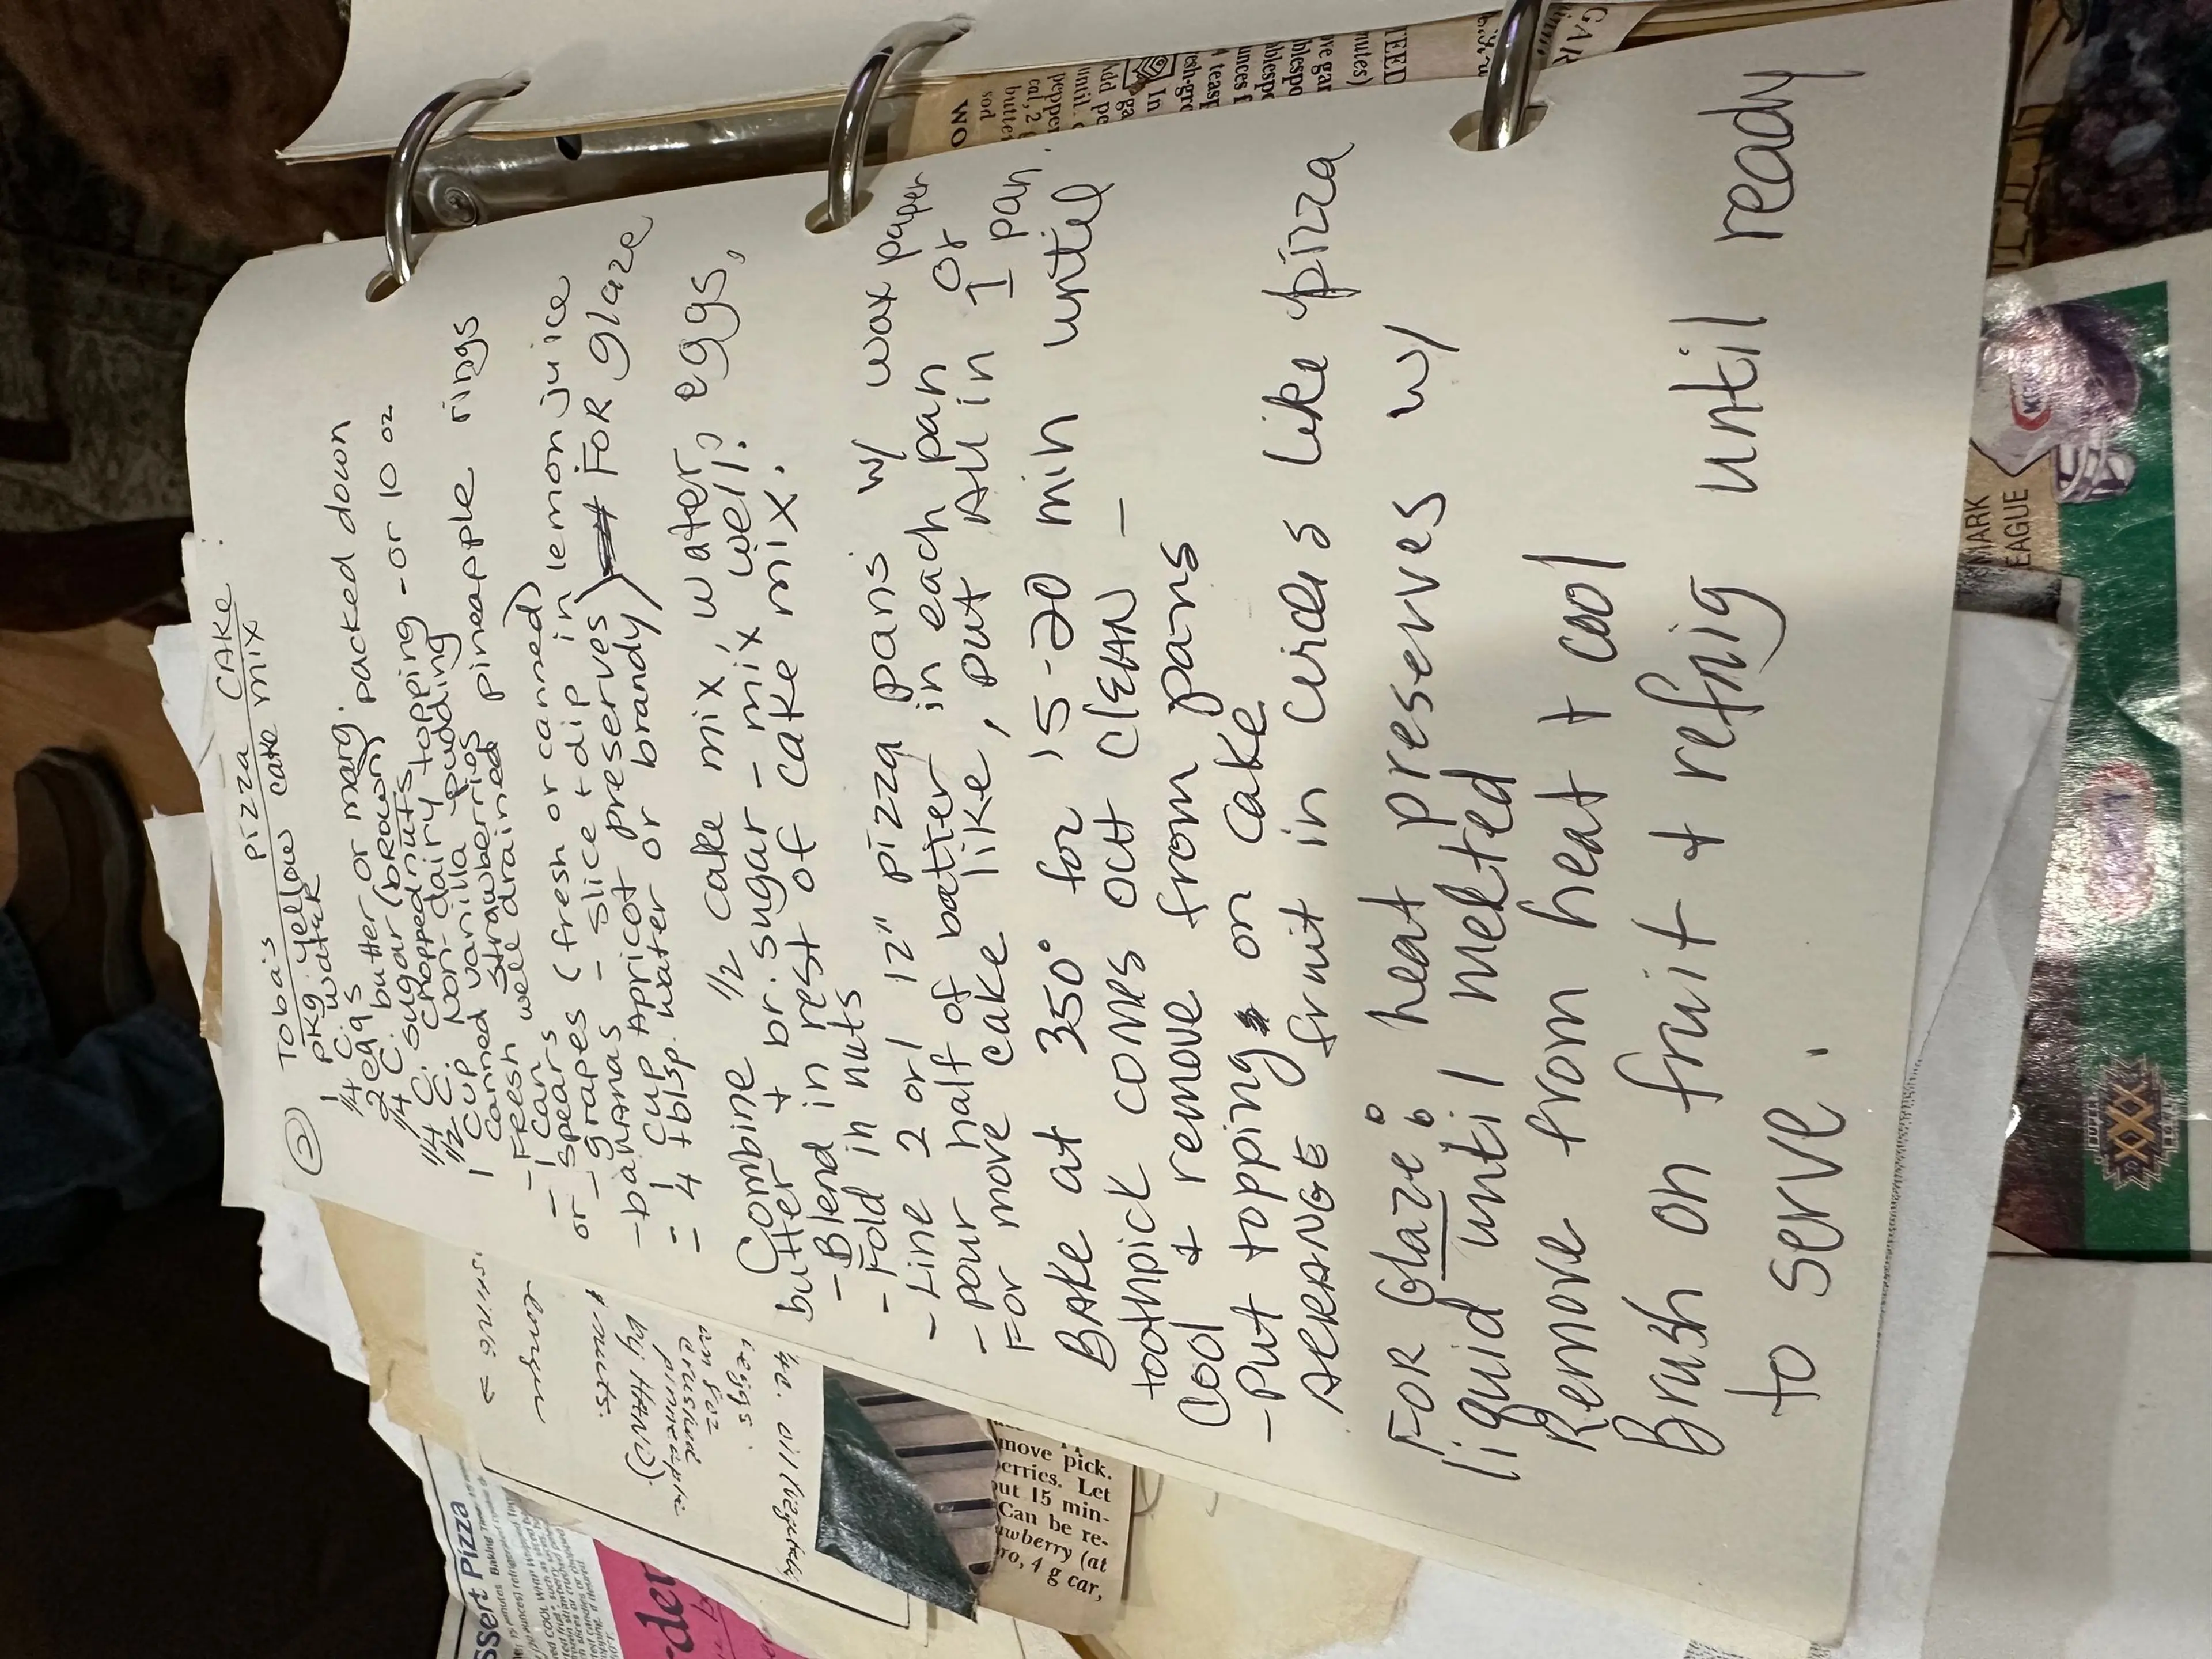 ② Toba's pizza CAKE:
1 pkg yellow cake mix
1/4 C. water
2 eggs
1/4 C. butter or marg.
1/4 C. sugar (brown) packed down
1/2 C. chopped nuts
1 cup Non-dairy topping - or 10 oz
canned vanilla pudding
- Fresh strawberries
- 1 can well drained pineapple rings
or spears
- grapes (fresh or canned)
- bananas - slice + dip in lemon juice
= 1 cup Apricot preserves
4 tblsp. water or brandy) FOR glaze
Combine 1/2 cake mix, water, eggs,
butter + br. sugar - mix well.
- Blend in rest of cake mix.
- Fold in nuts
- Line 2 or 1 12" pizza pans w/ wax paper
- pour half of batter in each pan or
For more cake like, put All in 1 pan.
BAke at 350° for 15-20 min until
toothpick comes out clEAN -
Cool & remove from pans
- Put topping on cake
ARRANGE fruit in circles like pizza
FOR Glaze: heat preserves w/
liquid until melted
Remove from heat + cool
Brush on fruit & refrig until ready
to serve.
WO
sod
butte
cal, 2
pepper
until
Add po
In
sh-gro
4 teasp
unces f
blespo
ve gar
nutes)
TEED
more
by HAND)
pineapple
crushed
eggs
ssert Pizza
der
move pick.
erries. Let
out 15 min-
Can be re-
awberry (at
ro, 4 g car,
MARK
EAGUE
XXX